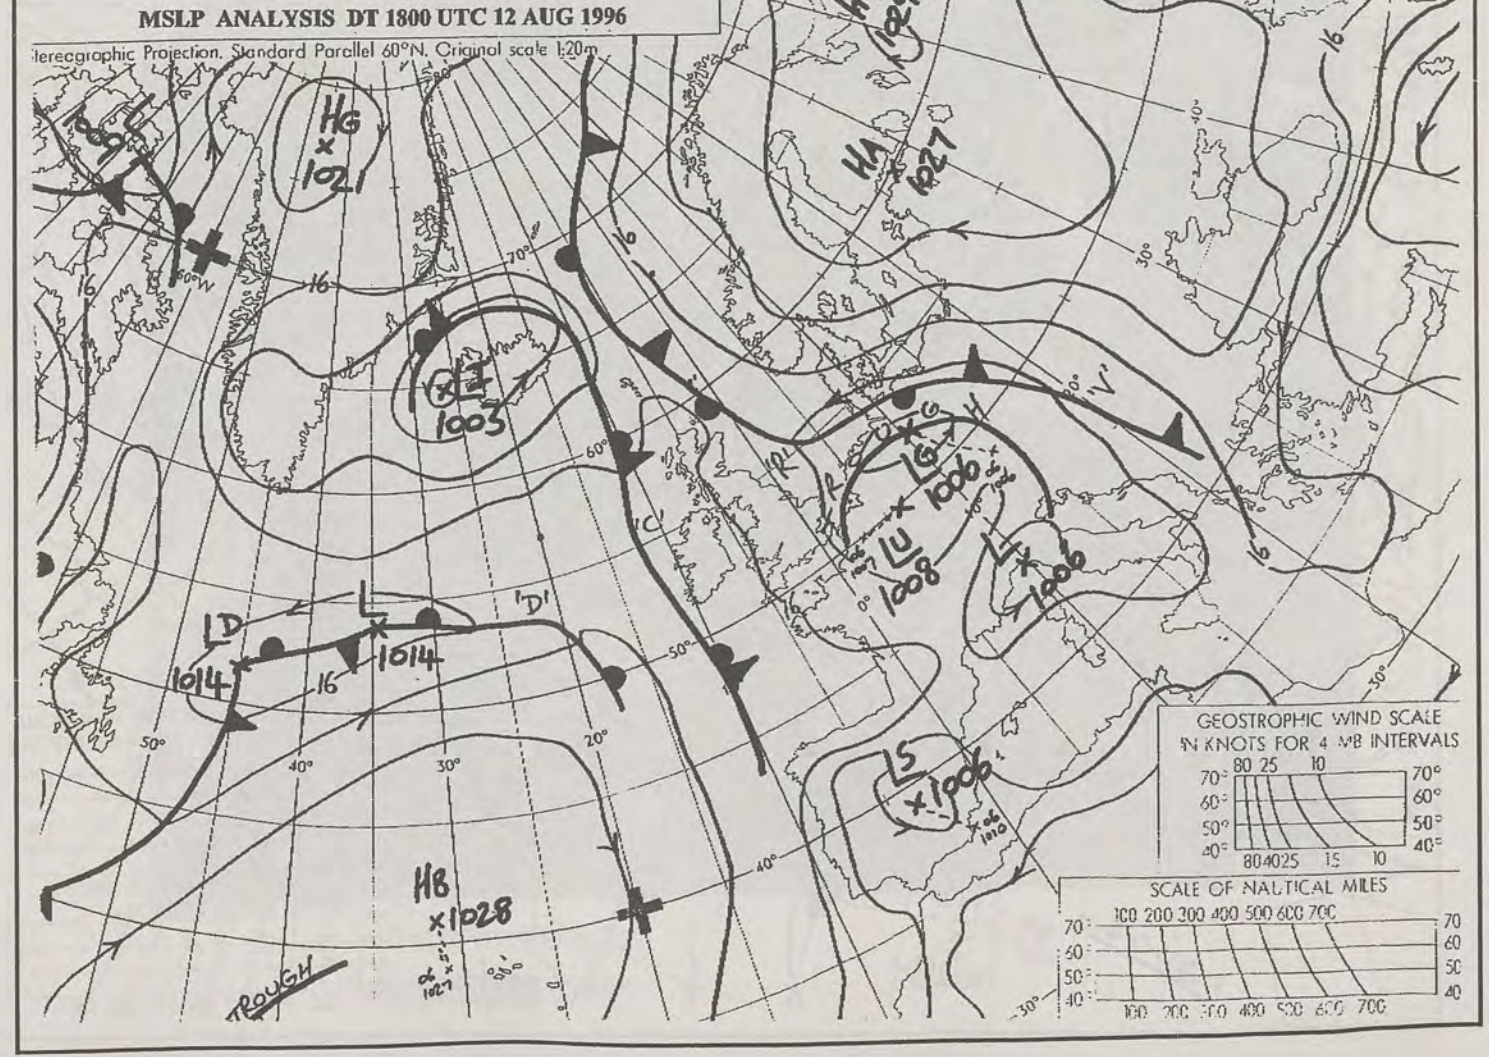 MSLP ANALYSIS DT 1800 UTC 12 AUG 1996
tereographic Projection. Standard Parallel 60°N. Original scale 1:20m
H
L
HG
1021
HA
1027
16
16
16
16
70°
80
60°W
30°
LI
1003
60°
'V'
'R'
R
G
H
LG
1006
06
1006
LU
1008
06
1007
L
1006
'C'
0°
16
LD
1014
L
1014
'D'
16
50°
50°
40°
30°
20°
30°
LS
1006
06
1010
40°
HB
1028
06
1027
TROUGH
30°
GEOSTROPHIC WIND SCALE
IN KNOTS FOR 4 MB INTERVALS
80 25 10
70° 70°
60° 60°
50° 50°
40° 40°
80 40 25 15 10
SCALE OF NAUTICAL MILES
100 200 300 400 500 600 700
70° 70
60 60
50 50
40° 40
100 200 300 400 500 600 700